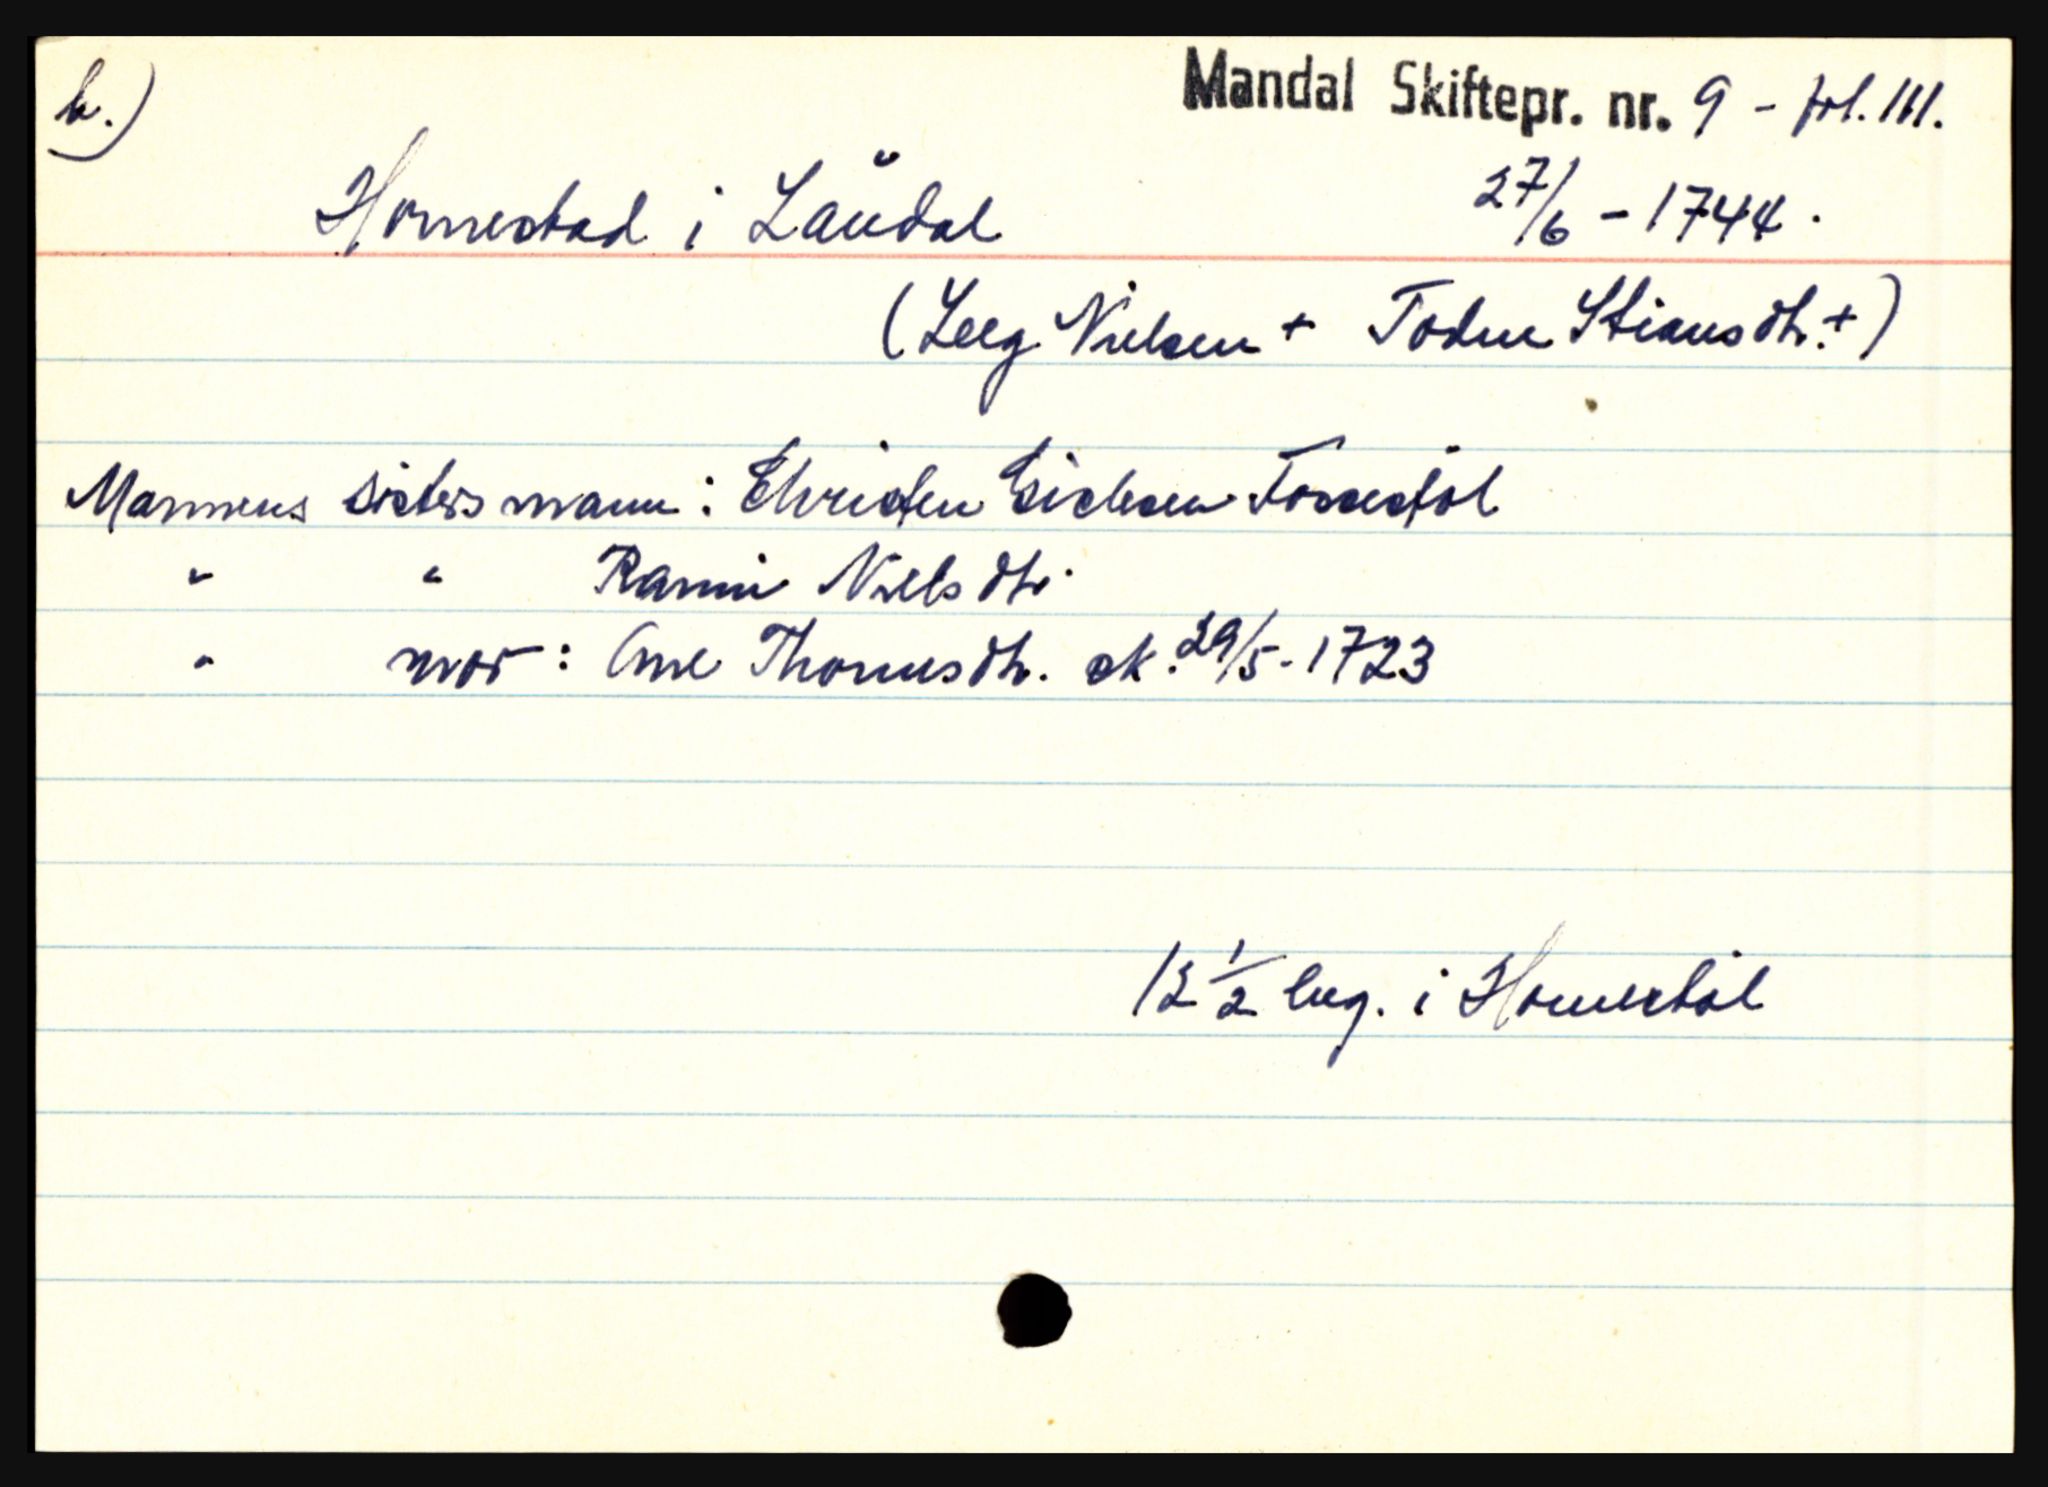 b.)
Mandal Skiftepr. nr. 9 - fol. 111.
Homestad i Laudal
27/6 - 1744.
(Leeg Nielsen + Todne Stiansdtr. +)
Mannens søsters mann: Christen Eichsen Fossestøl
" " Ranni Nielsdtr.
" mor: Ane Thomasdtr. sk. 29/5 - 1723
12 1/2 lug. i Homestøl